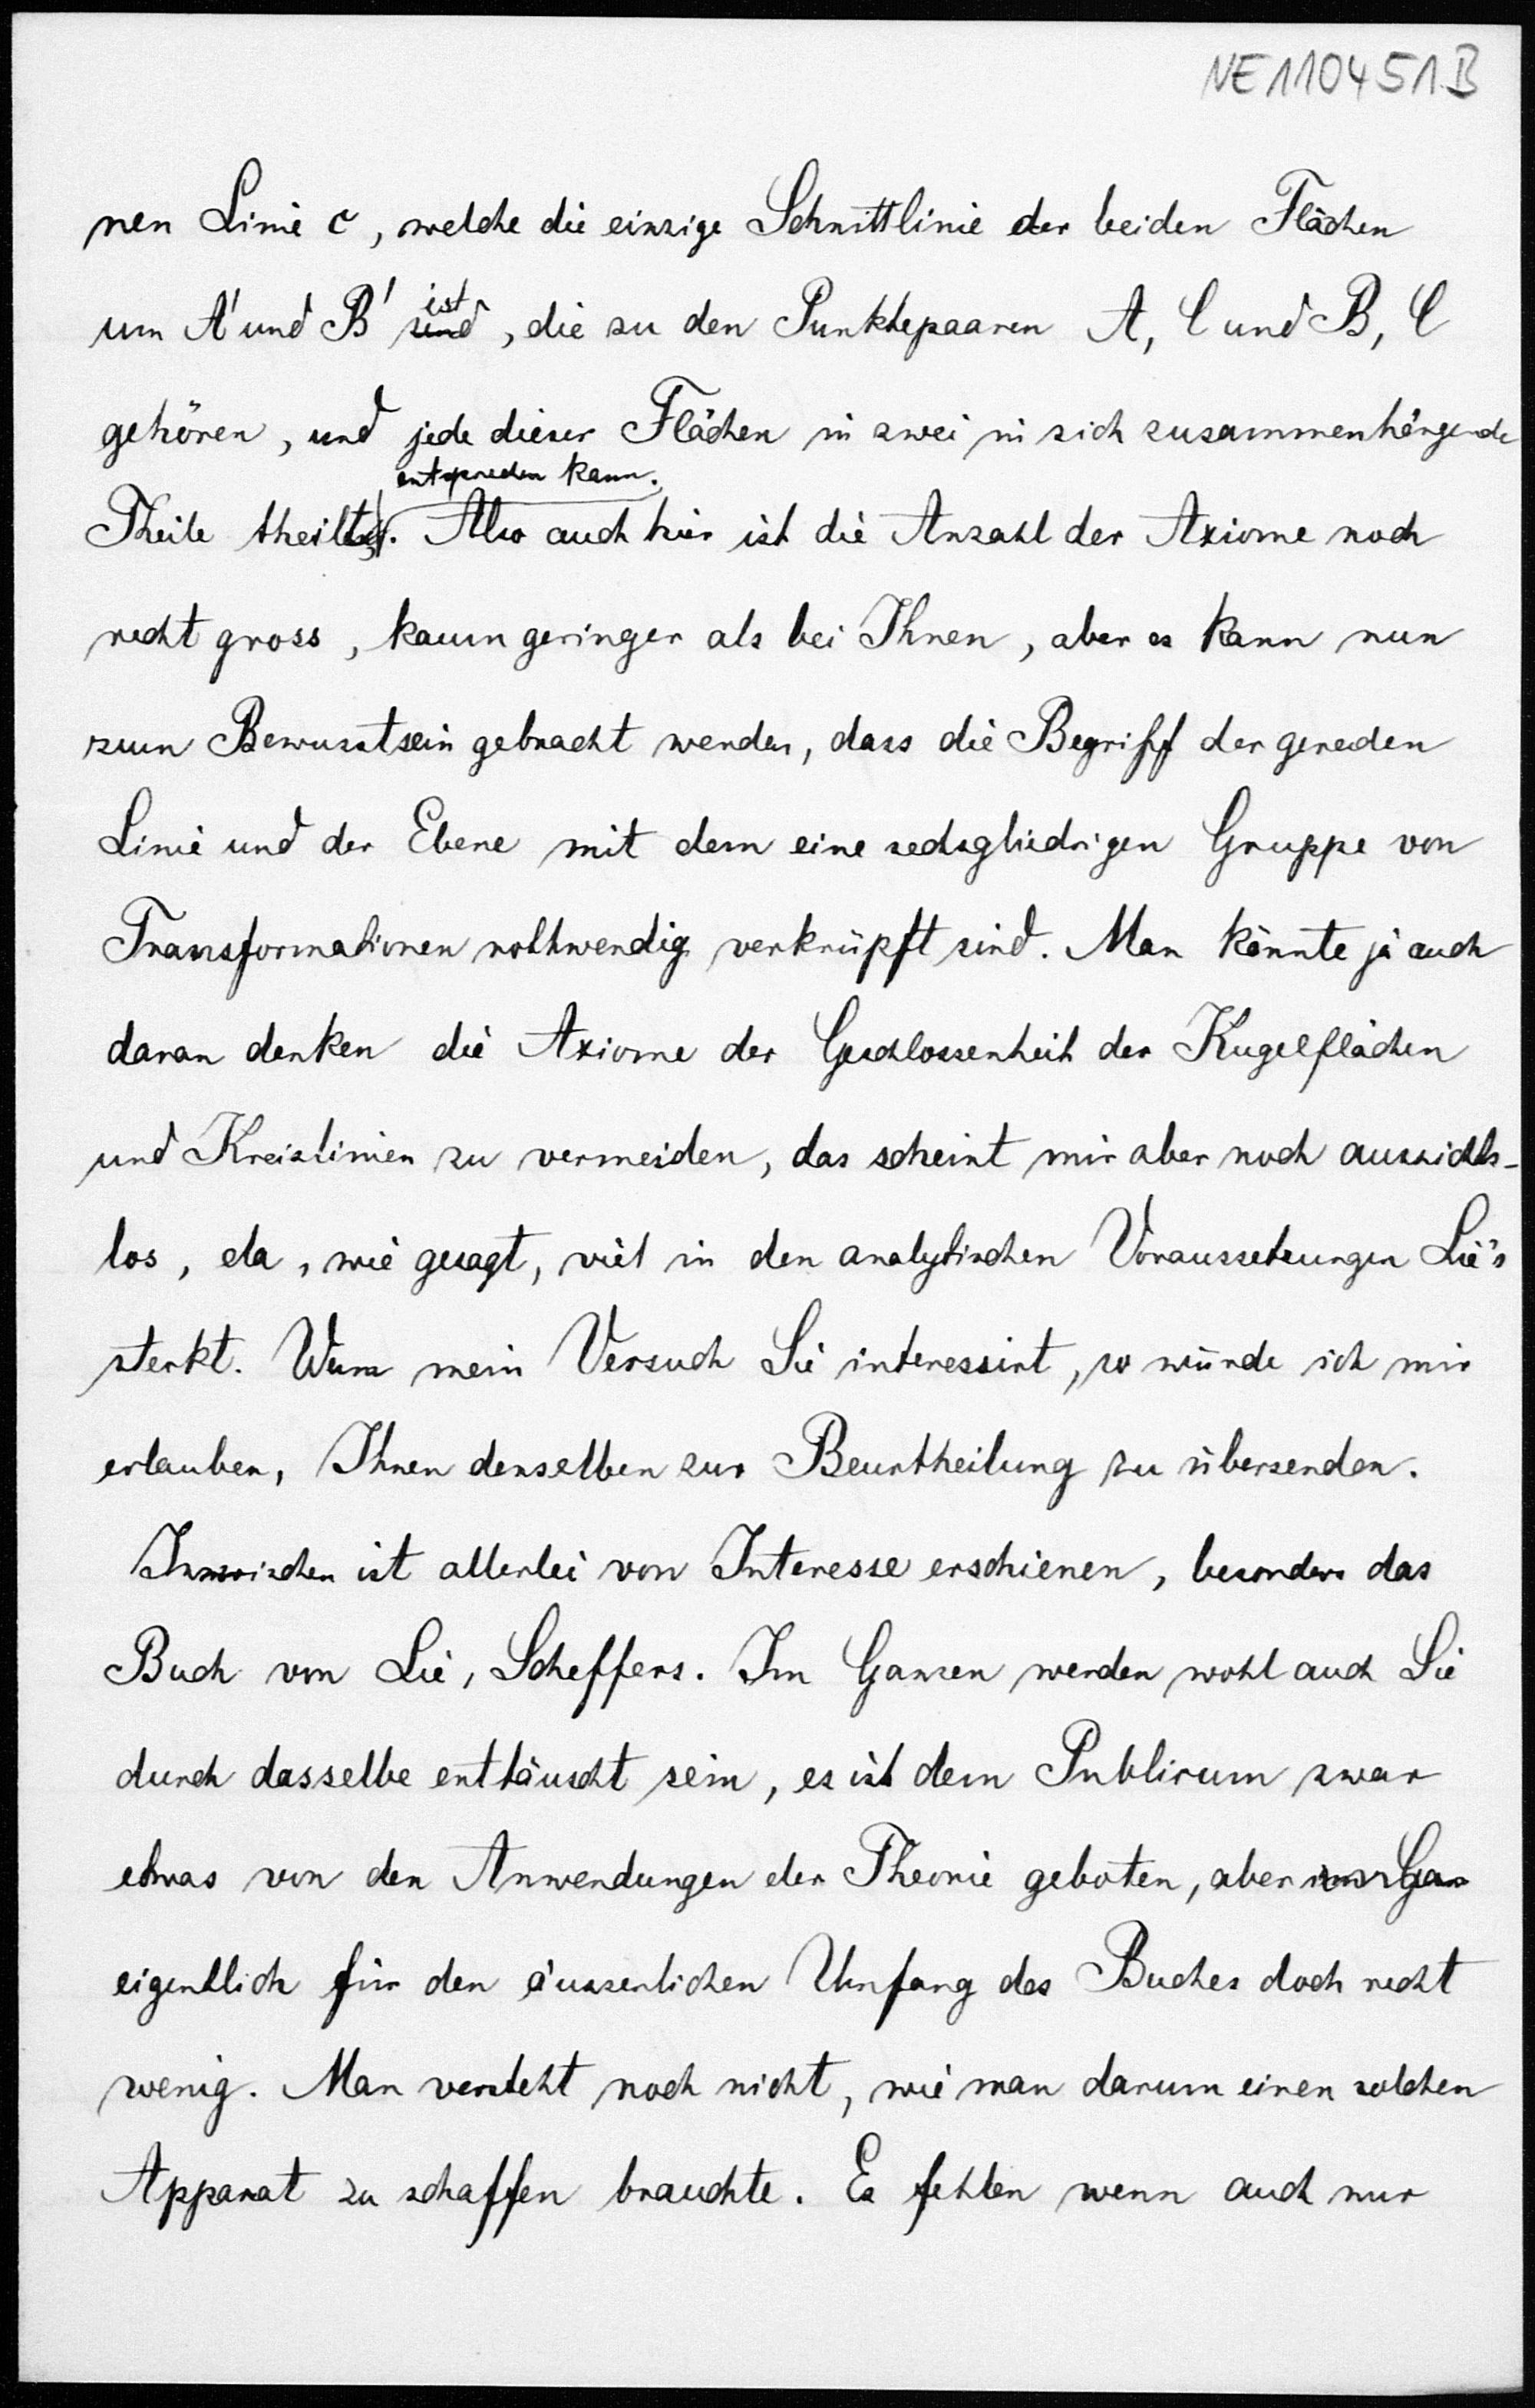 NE110451.B
nen Linie c, welche die einzige Schnittlinie der beiden Flächen
um A' und B' sind ist, die zu den Punktepaaren A, C und B, C
gehören, und jede dieser Flächen in zwei in sich zusammenhängende
entsprechen kann.
Theile theilt. Also auch hier ist die Anzahl der Axiome noch
recht gross, kaum geringer als bei Ihnen, aber es kann nun
zum Bewusstsein gebracht werden, dass die Begriff der geraden
Linie und der Ebene mit dem eine sechsgliedrigen Gruppe von
Transformationen nothwendig verknüpft sind. Man könnte ja auch
daran denken die Axiome der Geschlossenheit der Kugelflächen
und Kreislinien zu vermeiden, das scheint mir aber noch aussichts-
los, da, wie gesagt, viel in den analytischen Voraussetzungen Lie's
sterkt. Wenn mein Versuch Sie interessirt, so würde ich mir
erlauben, Ihnen denselben zur Beurtheilung zu übersenden.
Inzwischen ist allerlei von Interesse erschienen, besonders das
Buch von Lie, Scheffers. Im Ganzen werden wohl auch Sie
durch dasselbe enttäuscht sein, es ist dem Publicum zwar
etwas von den Anwendungen der Theorie geboten, aber
eigentlich für den äusserlichen Umfang des Buches doch recht
wenig. Man versteht noch nicht, wie man darum einen solchen
Apparat zu schaffen brauchte. Es fehlen wenn auch nur